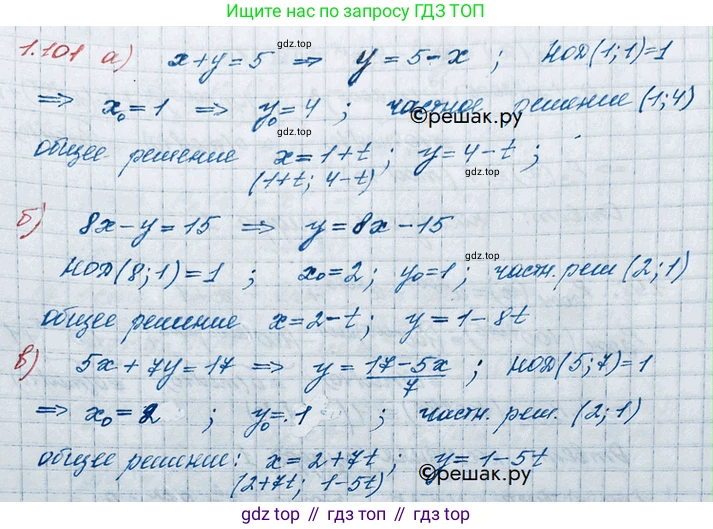 Ищите нас по запросу ГДЗ ТОП
1.101 а) x+y=5 => y=5-x ; НОД(1;1)=1
gdz.top
=> x₀=1 => y₀=4 ; частное решение (1;4)
gdz.top
©решак.ру
общее решение x=1+t ; y=4-t ;
gdz.top
(1+t; 4-t)
б) 8x-y=15 => y=8x-15
НОД(8;1)=1 ; x₀=2 ; y₀=1 ; частн. реш (2;1)
общее решение x=2-t ; y=1-8t
в) 5x+7y=17 => y=17-5x/7 ; НОД(5;7)=1
=> x₀=2 ; y₀=1 ; частн. реш. (2;1)
общее решение: x=2+7t ; y=1-5t
(2+7t; 1-5t)
©решак.ру
gdz top // гдз топ // gdz.top